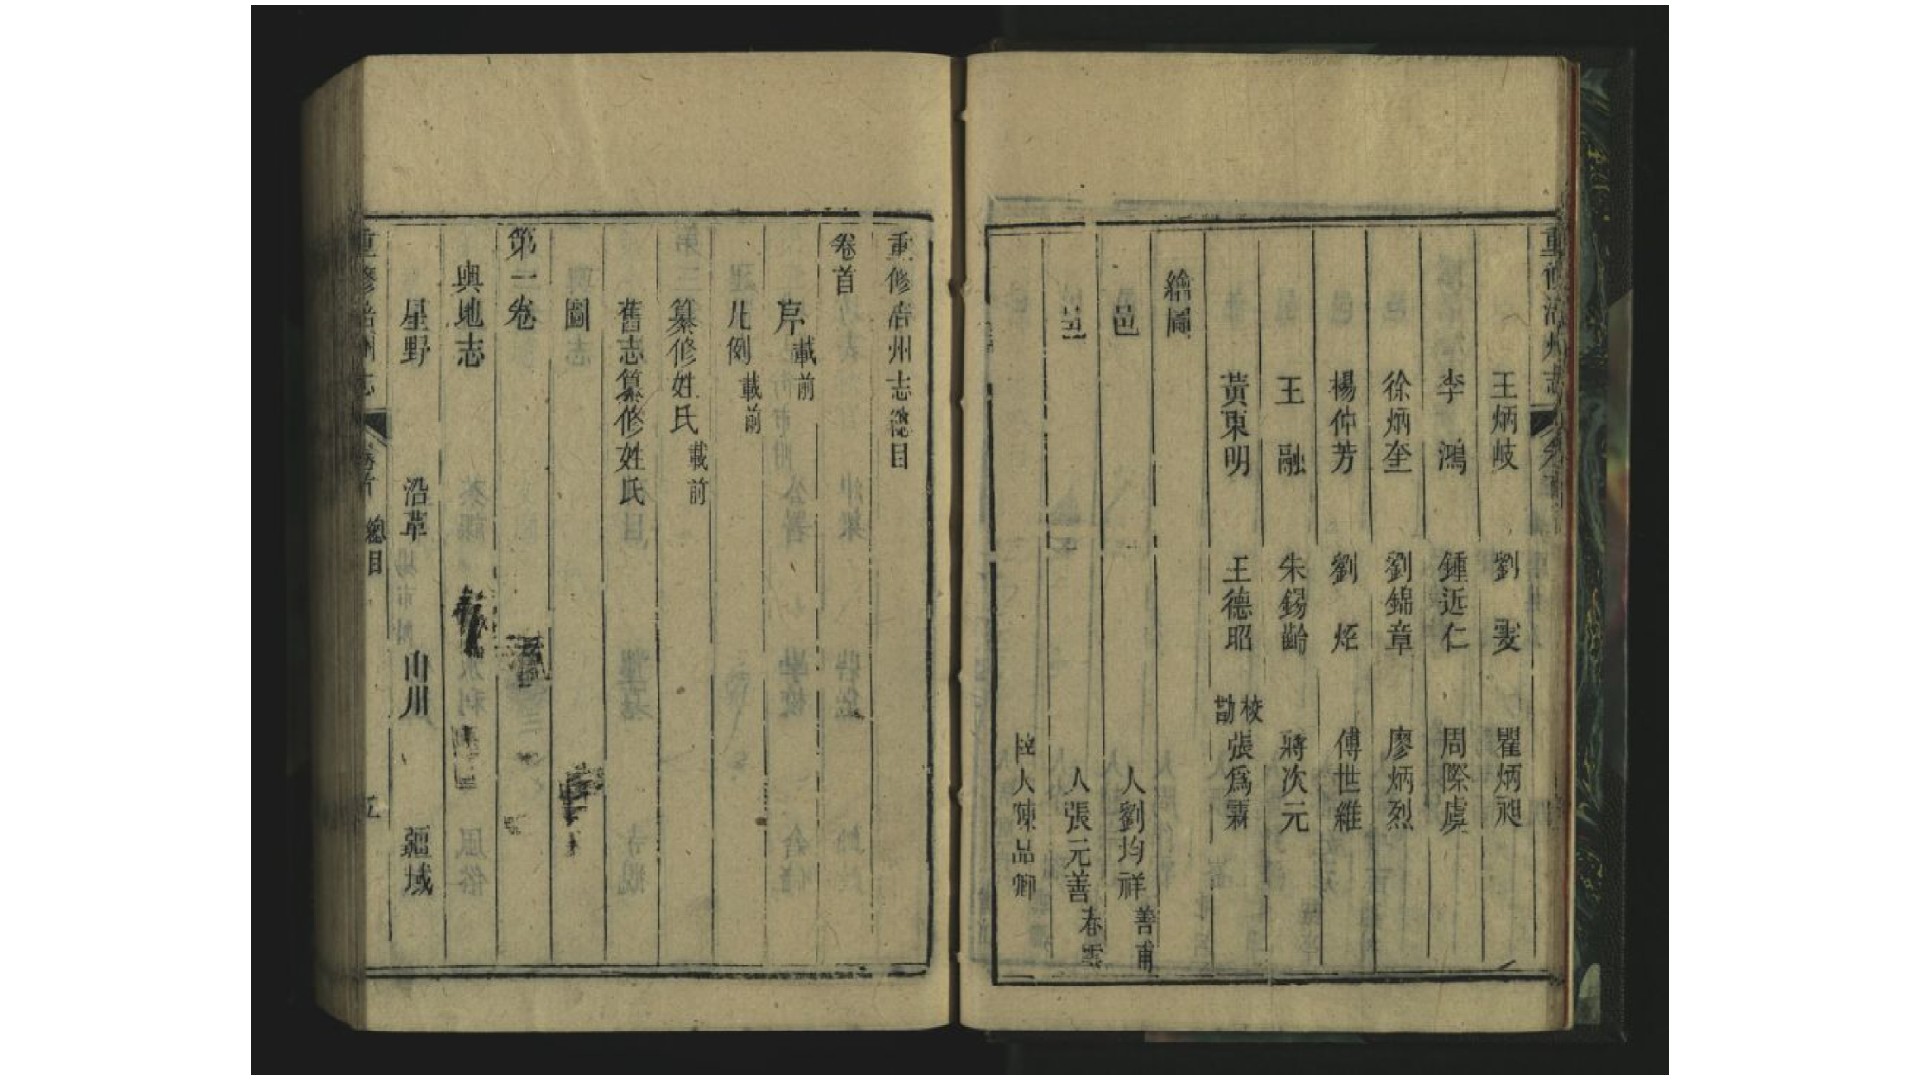 王炳岐 劉雯 瞿炳昶
李鴻 鍾近仁 周際虞
徐炳奎 劉錦章 廖炳烈
楊仲芳 劉炬 傅世維
王融 朱錫齡 蔣次元
黃東明 王德昭 校勘 張爲霖
繪圖
邑人劉均祥 善甫
邑人張元善 春雲
人陳品卿
重修涪州志總目
卷首
序 載前
凡例 載前
纂修姓氏 載前
舊志纂修姓氏
圖志
第一卷
輿地志
星野 沿革 山川 疆域
重修涪州志 卷首 總目 五